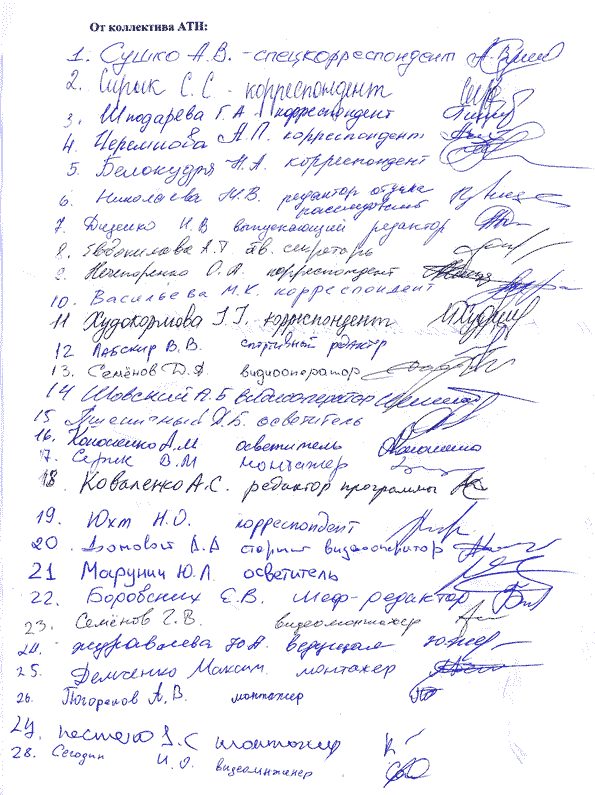 От коллектива АТН:
1. Сушко А.В. - спецкорреспондент
2. Сирык С.С - корреспондент
3. Шподарева Г.А корреспондент
4. А.П. корреспондент
5. Белокудря Н.А. корреспондент
6. Николаева М.В. редактор отдела
расследований
7. Диденко И.В выпускающий редактор
8. Евдокимова А.Т отв. секретарь
9. Нечипоренко О.А. корреспондент
10. Васильева М.К. корреспондент
11 Худокормова Т.Г. корреспондент
12 В.В. спортивный редактор
13. Семёнов видеооператор
14 Шовский А.Б видеооператор
15 Пшеничный Д.Б. осветитель
16. Кононенко А.М осветитель
17. Серик В.М монтажер
18 Коваленко А.С. редактор программы
19. Юхт Н.О. корреспондент
20. Домовой А.А старший видеооператор
21 Марунич Ю.Л. осветитель
22. Боровских Е.В. шеф-редактор
23. Семёнов Г.В. видеомонтажер
24. Журавлева Ю.А. ведущая
25. Демченко Максим. монтажер
26. А.В. монтажер
27 монтажер
28. Сегодин И.О. видеоинженер